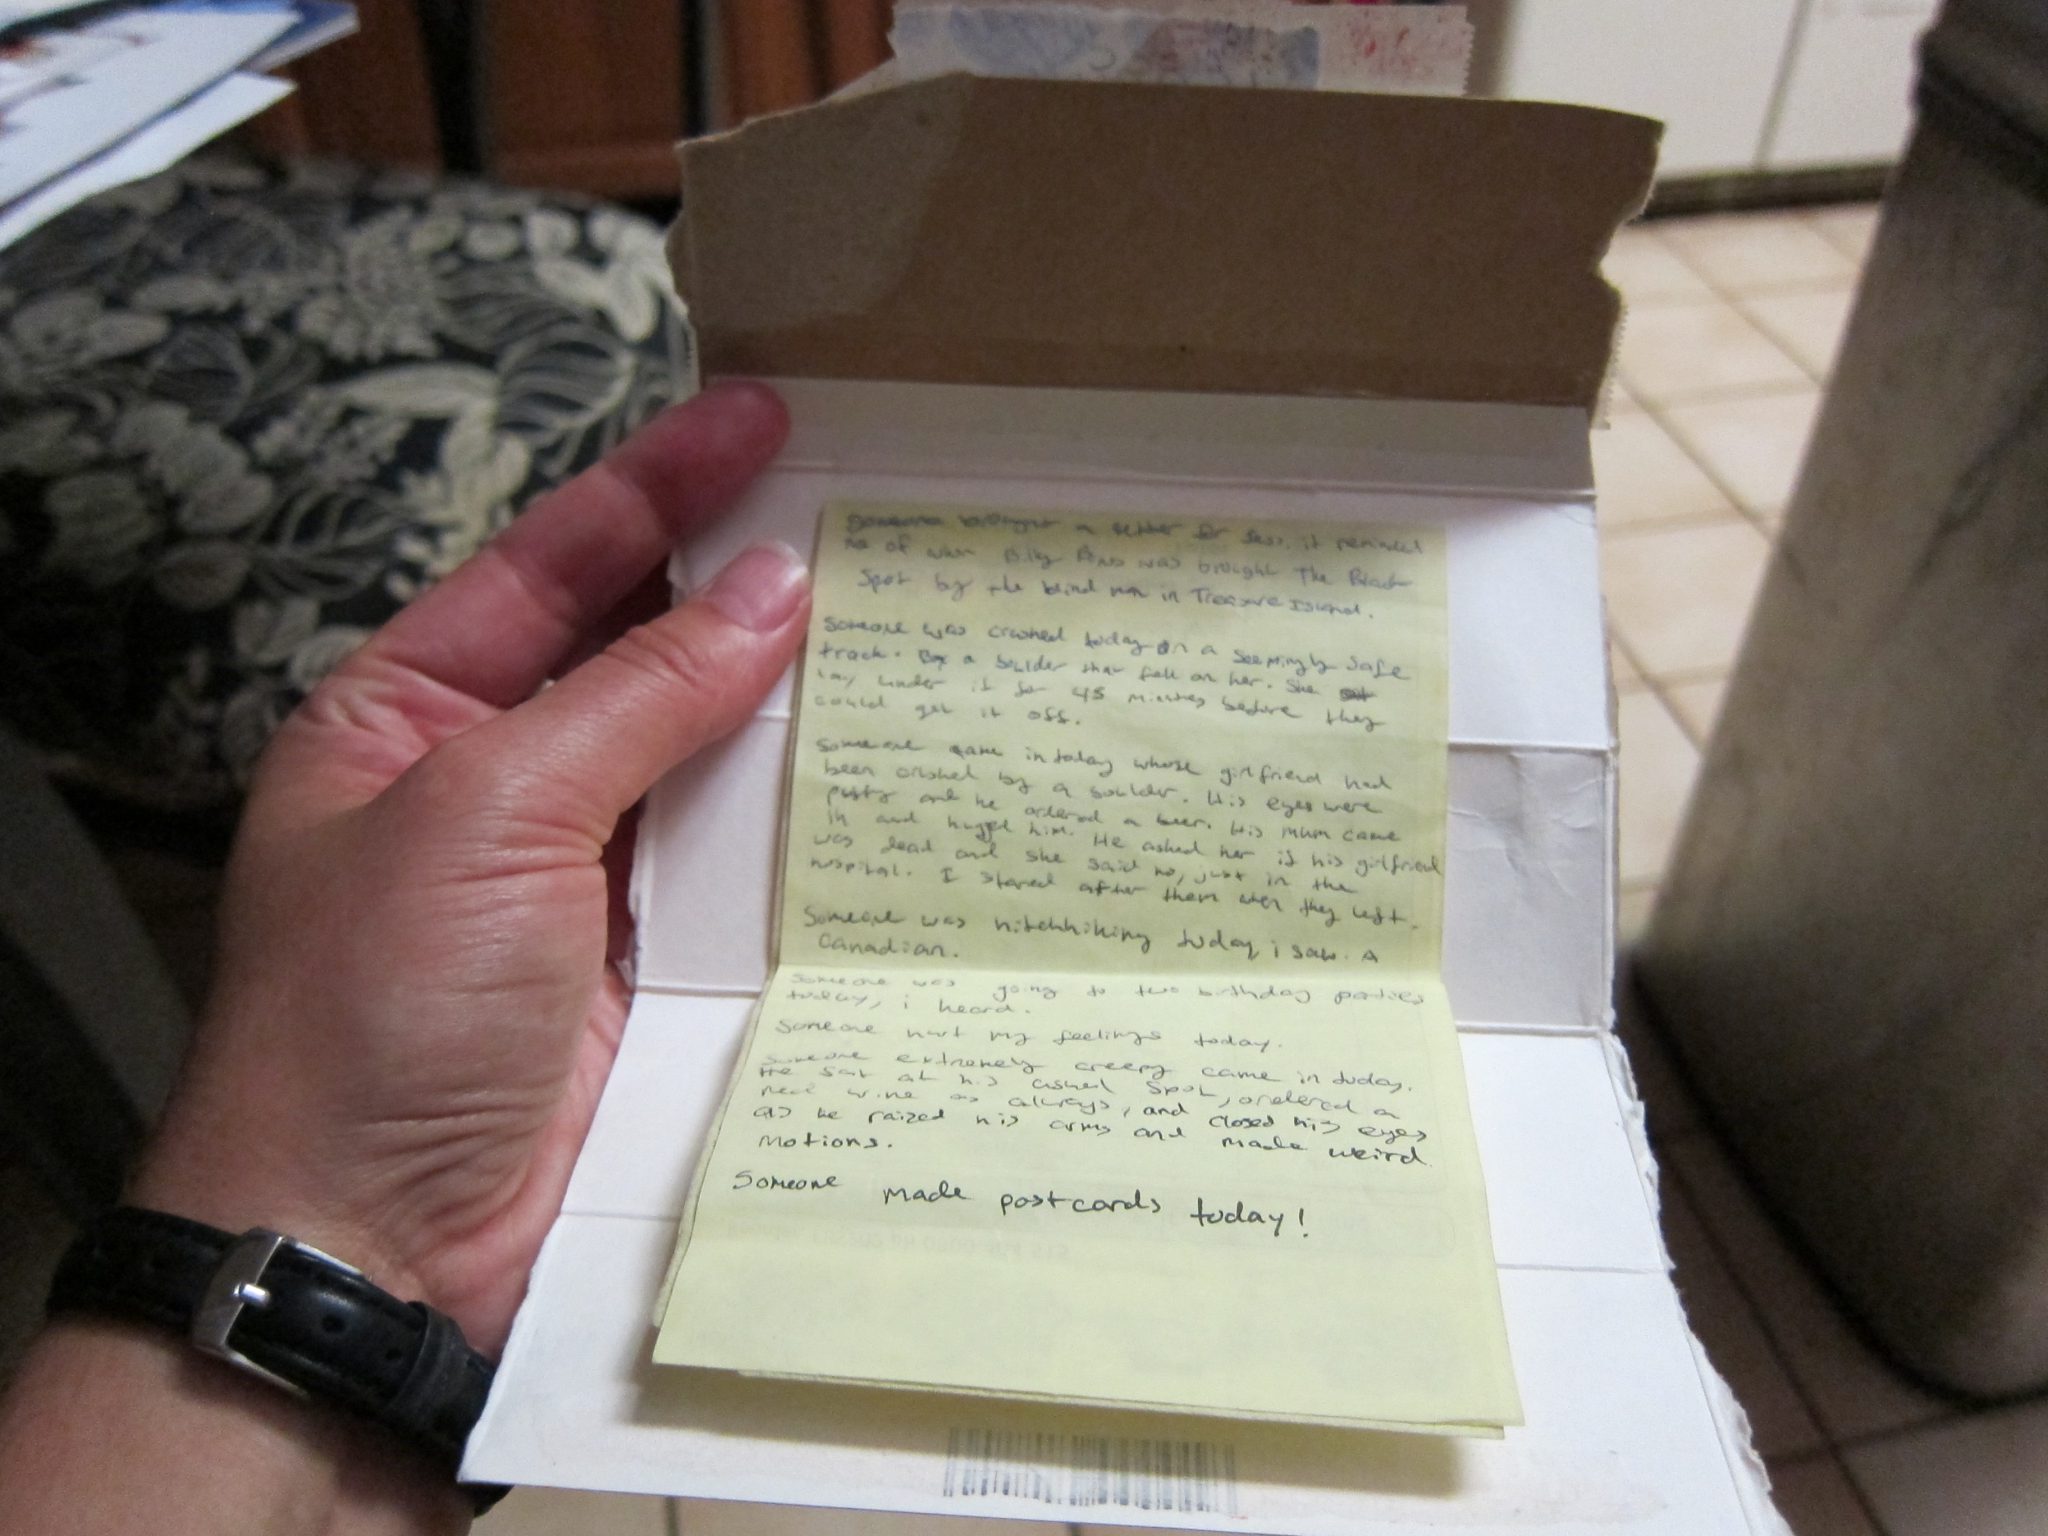 Someone brought a letter for Jess, it reminded
me of when Billy Bones was brought The Black
Spot by the blind man in Treasure Island.
Someone was crushed today on a seemingly safe
track. By a boulder that fell on her. She
lay under it for 45 minutes before they
could get it off.
Someone came in today whose girlfriend had
been crushed by a boulder. His eyes were
puffy and he ordered a beer. His mum came
in and hugged him. He asked her if his girlfriend
was dead and she said no, just in the
hospital. I stared after them when they left.
Someone was hitchhiking today, i saw. A
Canadian.
Someone was going to two birthday parties
today, i heard.
Someone hurt my feelings today.
Someone extremely creepy came in today.
He sat at his usual spot, ordered a
red wine as always, and closed his eyes
as he raized his arms and made weird
motions.
Someone made postcards today!